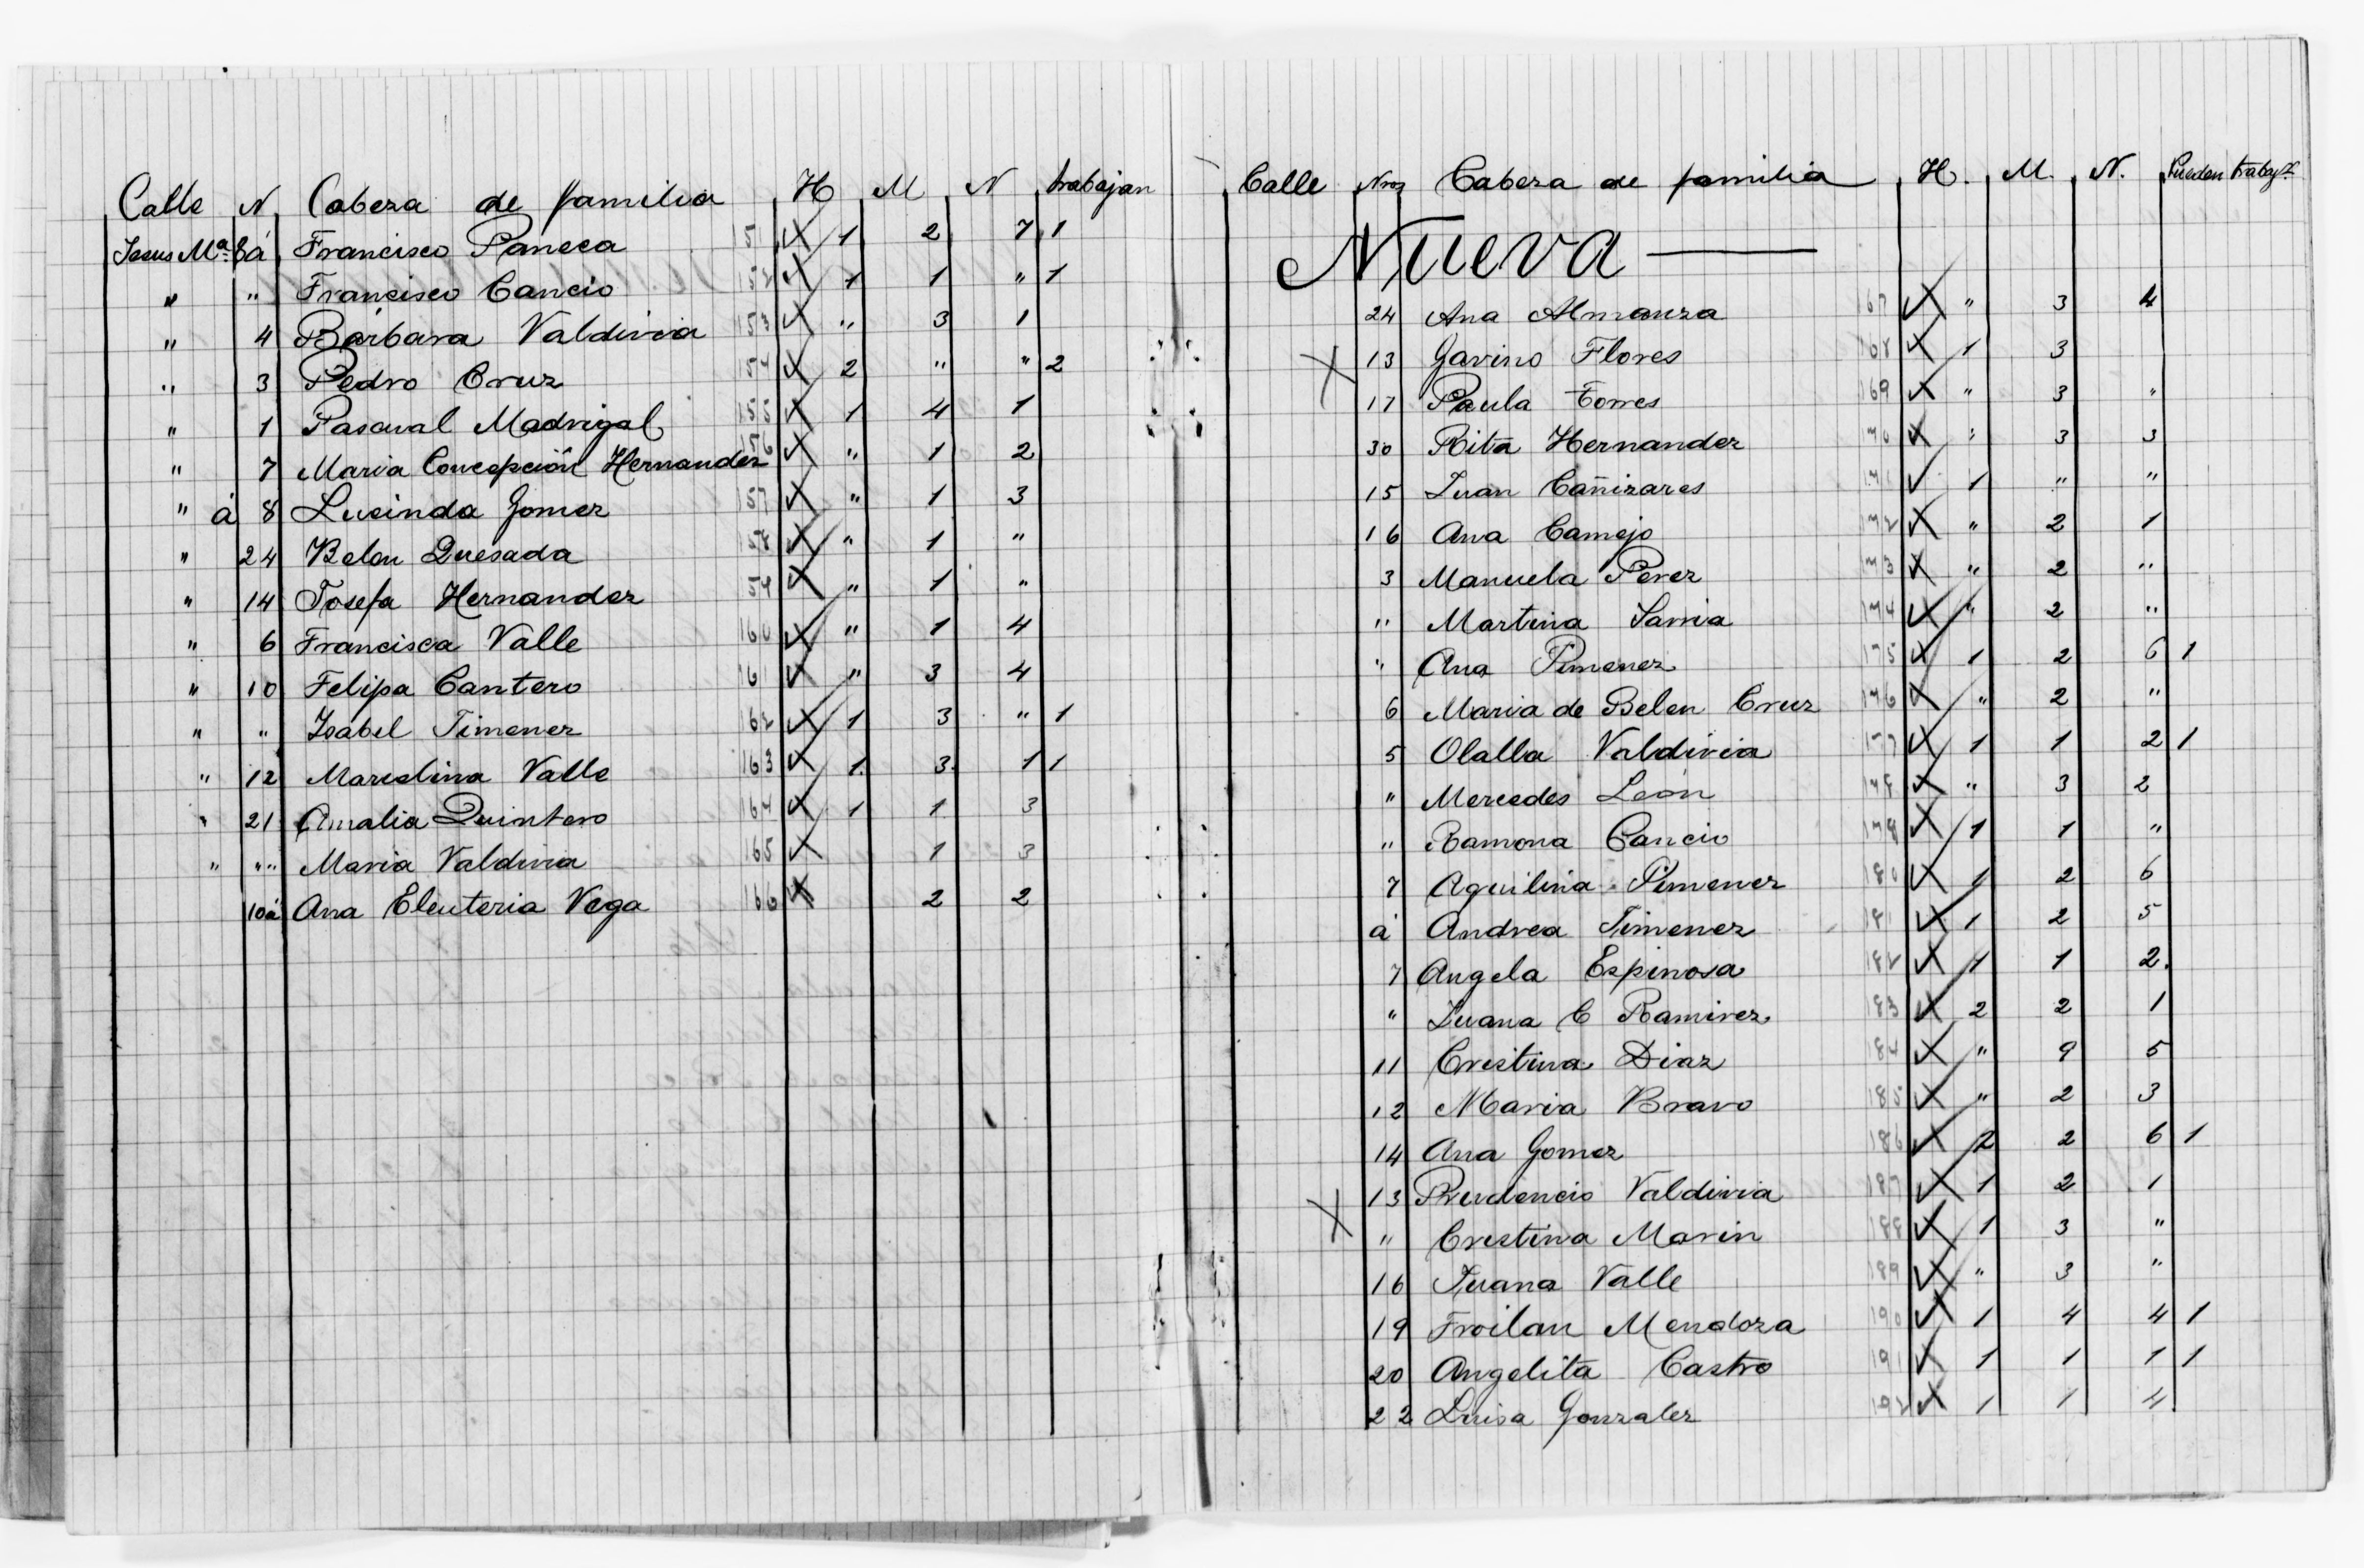 Calle N Cabeza de familia H M N trabajan
Jesus Mª 8á Francisco Paneca 151 1 2 7 1
" " Francisco Cancio 152 1 1 " 1
" 4 Bárbara Valdivia 153 " 3 1
" 3 Pedro Cruz 154 2 " " 2
" 1 Pascual Madrigal 155 1 4 1
" 7 Maria Concepción Hernandez 156 " 1 2
" á 8 Lucinda Gomez 157 " 1 3
" 24 Belen Quesada 158 " 1 "
" 14 Josefa Hernandez 59 " 1 "
" 6 Francisca Valle 160 " 1 4
" 10 Felipa Cantero 161 " 3 4
" " Isabel Jimenez 162 1 3 " 1
" 12 Marcelina Valle 163 1. 3. 1 1
" 21 Amalia Quintero 164 1 1 3
" " Maria Valdivia 165 1 3
10á Ana Eleuteria Vega 166 2 2
Calle Nros Cabeza de familia H. M. N. Pueden
Nueva —
24 Ana Almanza 167 " 3 4
X 13 Gavino Flores 168 1 3
17 Paula Torres 169 " 3 "
30 Rita Hernandez 170 " 3 3
15 Juan Cañizares 171 1 " "
16 Ana Camejo 172 " 2 1
3 Manuela Perez 173 " 2 "
" Martina Sarria 174 " 2 "
" Ana Jimenez 175 1 2 6 1
6 Maria de Belen Cruz 176 " 2 "
5 Olalla Valdivia 177 1 1 2 1
" Mercedes León 178 " 3 2
" Ramona Cancio 179 1 1 "
7 Aquilina Jimenez 180 1 2 6
á Andrea Jimenez 181 1 2 5
7 Angela Espinosa 182 1 1 2.
" Juana C Ramirez 183 2 2 1
11 Cristina Diaz 184 " 9 5
12 Maria Bravo 185 " 2 3
14 Ana Gomez 186 2 2 6 1
X 13 Prudencio Valdivia 187 1 2 1
" Cristina Marin 188 1 3 "
16 Juana Valle 189 " 3 "
19 Froilan Mendoza 190 1 4 4 1
20 Angelita Castro 191 1 1 1 1
22 Luisa Gonzalez 192 1 1 4